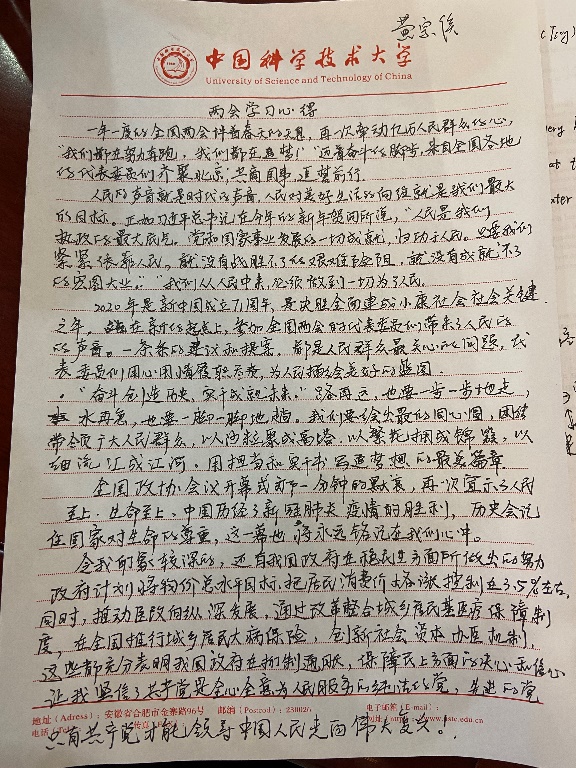 黄宗俊
中国科学技术大学
University of Science and Technology of China
两会学习心得
一年一度的全国两会伴着春天的气息，再一次牵动亿万人民群众的心，
"我们都在努力奔跑，我们都在追梦！"迈着奋斗的脚步，来自全国各地
的代表委员们齐聚北京，共商国事，逐梦前行。
人民的声音就是时代的声音，人民对美好生活的向往就是我们最大
的目标。正如习近平总书记在今年的新年贺词所说，"人民是我们
执政的最大底气。党和国家事业发展的一切成就，归功于人民。只要我们
紧紧依靠人民，就没有战胜不了的艰难险阻，就没有成就不了
的宏图大业。"我们从人民中来，必须做到一切为了人民。
2020年是新中国成立71周年，是决胜全面建成小康社会社会关键
之年，在新的起点上，参加全国两会的代表委员们带来了人民的
的声音。一条条的建议和提案，都是人民群众最关心的问题，代
表委员们用心用情履职尽责，为人民描绘美好的蓝图。
"奋斗创造历史，实干成就未来。"路再远，也要一步一步地走，
水再急，也要一脚一脚地趟。我们要绘出最美的同心圆，团结
带领广大人民群众，以沙粒累成高塔，以繁花拥成锦簇，以
细流汇成江河，用担当和实干书写追梦想的最美篇章
全国政协会议开幕式的一分钟的默哀，再一次宣示了人民
至上、生命至上、中国历经了新冠肺炎疫情的胜利，历史会记
住国家对生命的尊重，这一幕也将永远铭记在我们心中。
令我印象较深的，还有我国政府在稳民生方面所做出的努力
政府计划将物价总水平目标，把居民消费价格涨控制在3.5%左右
同时，推动医改向纵深发展，通过改革整合城乡居民基医疗保障制
度，在全国推行城乡居民大病保险，创新社会资本办医机制，
这些都充分表明我国政府在抑制通胀，保障民生方面的决心和信心
让我坚信了共产党是全心全意为人民服务的纯洁的党，先进的党
地址（Adress）：安徽省合肥市金寨路96号 邮编（Postcol）：230026 电子邮箱（E-mail）：
只有共产党才能领导中国人民走向伟大复兴！